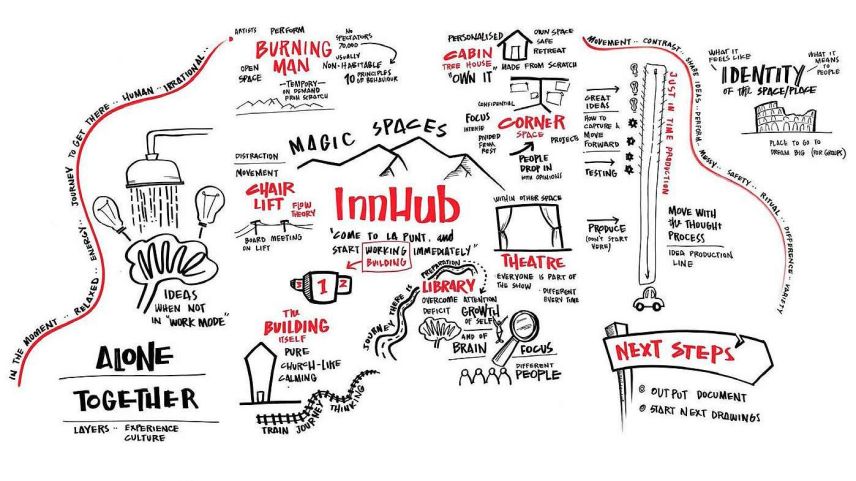 IN THE MOMENT.. RELAXED.. ENERGY.. JOURNEY TO GET THERE.. HUMAN.. IRRATIONAL..
IDEAS
WHEN NOT
IN "WORK MODE"
ALONE
TOGETHER
LAYERS.. EXPERIENCE
CULTURE
ARTISTS
PERFORM
BURNING
MAN
NO
SPECTATORS
70,000
USUALLY
NON-HABITABLE
10 PRINCIPLES
OF BEHAVIOUR
OPEN
SPACE
TEMPORY
ON DEMAND
FROM SCRATCH
MAGIC SPACES
DISTRACTION
MOVEMENT
CHAIR
LIFT
FLOW
THEORY
BOARD MEETING
ON LIFT
InnHub
"COME TO LA PUNT, and
START WORKING IMMEDIATELY"
BUILDING
1 2
THE
BUILDING
ITSELF
PURE
CHURCH-LIKE
CALMING
TRAIN JOURNEY THINKING
JOURNEY THERE IS
PREPARATION
LIBRARY
OVERCOME ATTENTION
DEFICIT
GROWTH
OF SELF
AND OF
BRAIN
FOCUS
DIFFERENT
PEOPLE
PERSONALISED
CABIN
TREE HOUSE
"OWN IT"
OWN SPACE
SAFE
RETREAT
MADE FROM SCRATCH
CONFIDENTIAL
FOCUS
CORNER
SPACE
DIVIDED
FROM
REST
PROJECTS
PEOPLE
DROP IN
WITH OPINIONS
WITHIN OTHER SPACE
THEATRE
EVERYONE IS PART OF
THE SHOW
DIFFERENT
EVERY TIME
MOVEMENT.. CONTRAST.. SHARE IDEAS.. PERFORM.. MESSY.. SAFETY.. RITUAL.. DIFFERENCE.. VARIETY
GREAT
IDEAS
HOW TO
CAPTURE &
MOVE
FORWARD
TESTING
PRODUCE
(DON'T START
HERE)
JUST IN TIME PRODUCTION
MOVE WITH
the THOUGHT
PROCESS
IDEA PRODUCTION
LINE
WHAT IT
FEELS LIKE
WHAT IT
MEANS
TO
PEOPLE
IDENTITY
OF THE SPACE/PLACE
PLACE TO GO TO
DREAM BIG (FOR GROUPS)
NEXT STEPS
OUTPUT DOCUMENT
START NEXT DRAWINGS